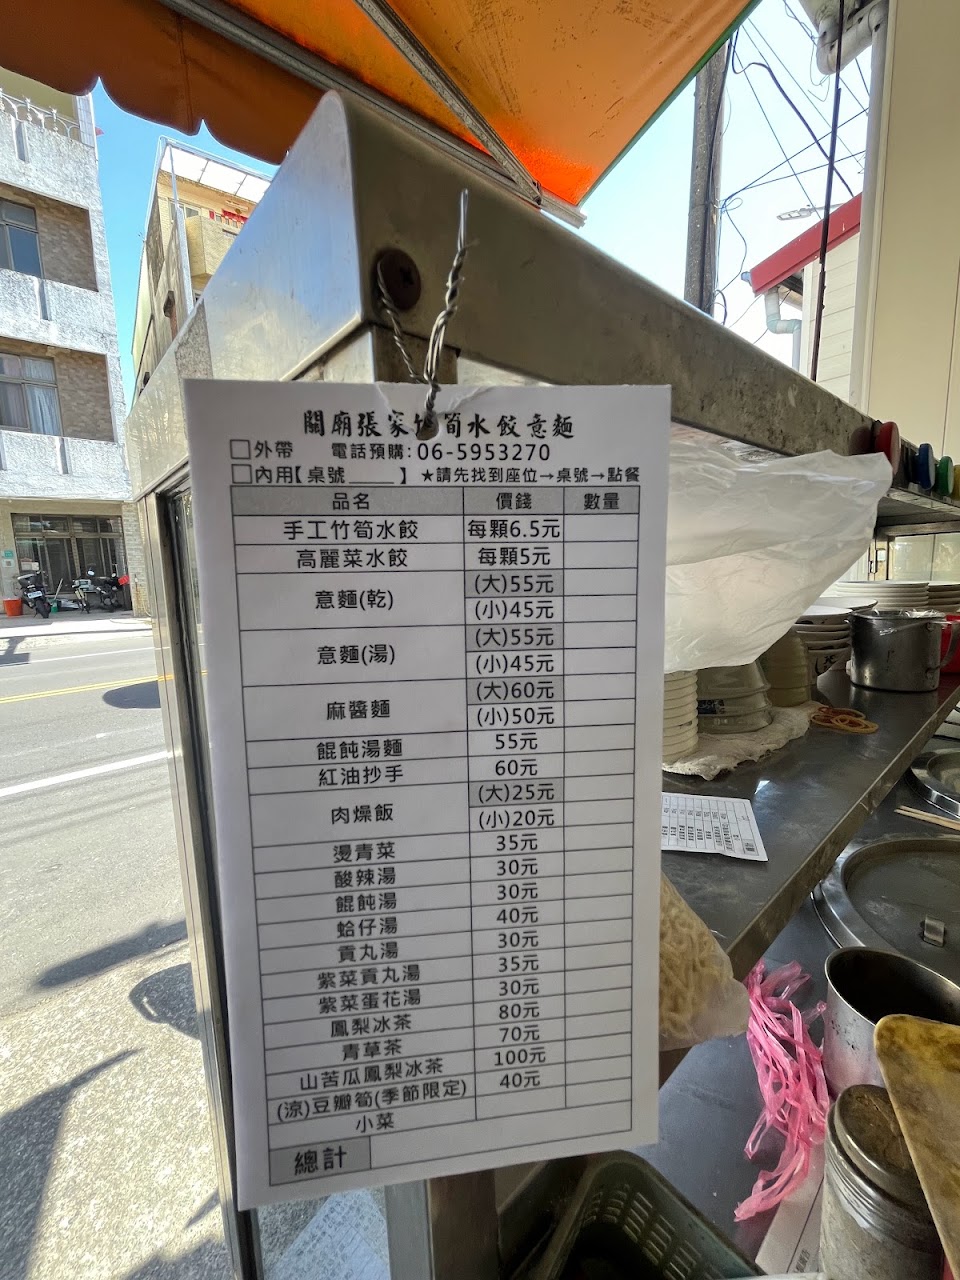 關廟張家竹筍水餃意麵
□外帶 電話預購:06-5953270
□內用【桌號____】 ★請先找到座位→桌號→點餐
品名 價錢 數量
手工竹筍水餃 每顆6.5元
高麗菜水餃 每顆5元
意麵(乾) (大)55元
(小)45元
意麵(湯) (大)55元
(小)45元
麻醬麵 (大)60元
(小)50元
餛飩湯麵 55元
紅油抄手 60元
肉燥飯 (大)25元
(小)20元
燙青菜 35元
酸辣湯 30元
餛飩湯 30元
蛤仔湯 40元
貢丸湯 30元
紫菜貢丸湯 35元
紫菜蛋花湯 30元
鳳梨冰茶 80元
青草茶 70元
山苦瓜鳳梨冰茶 100元
(涼)豆瓣筍(季節限定) 40元
小菜
總計